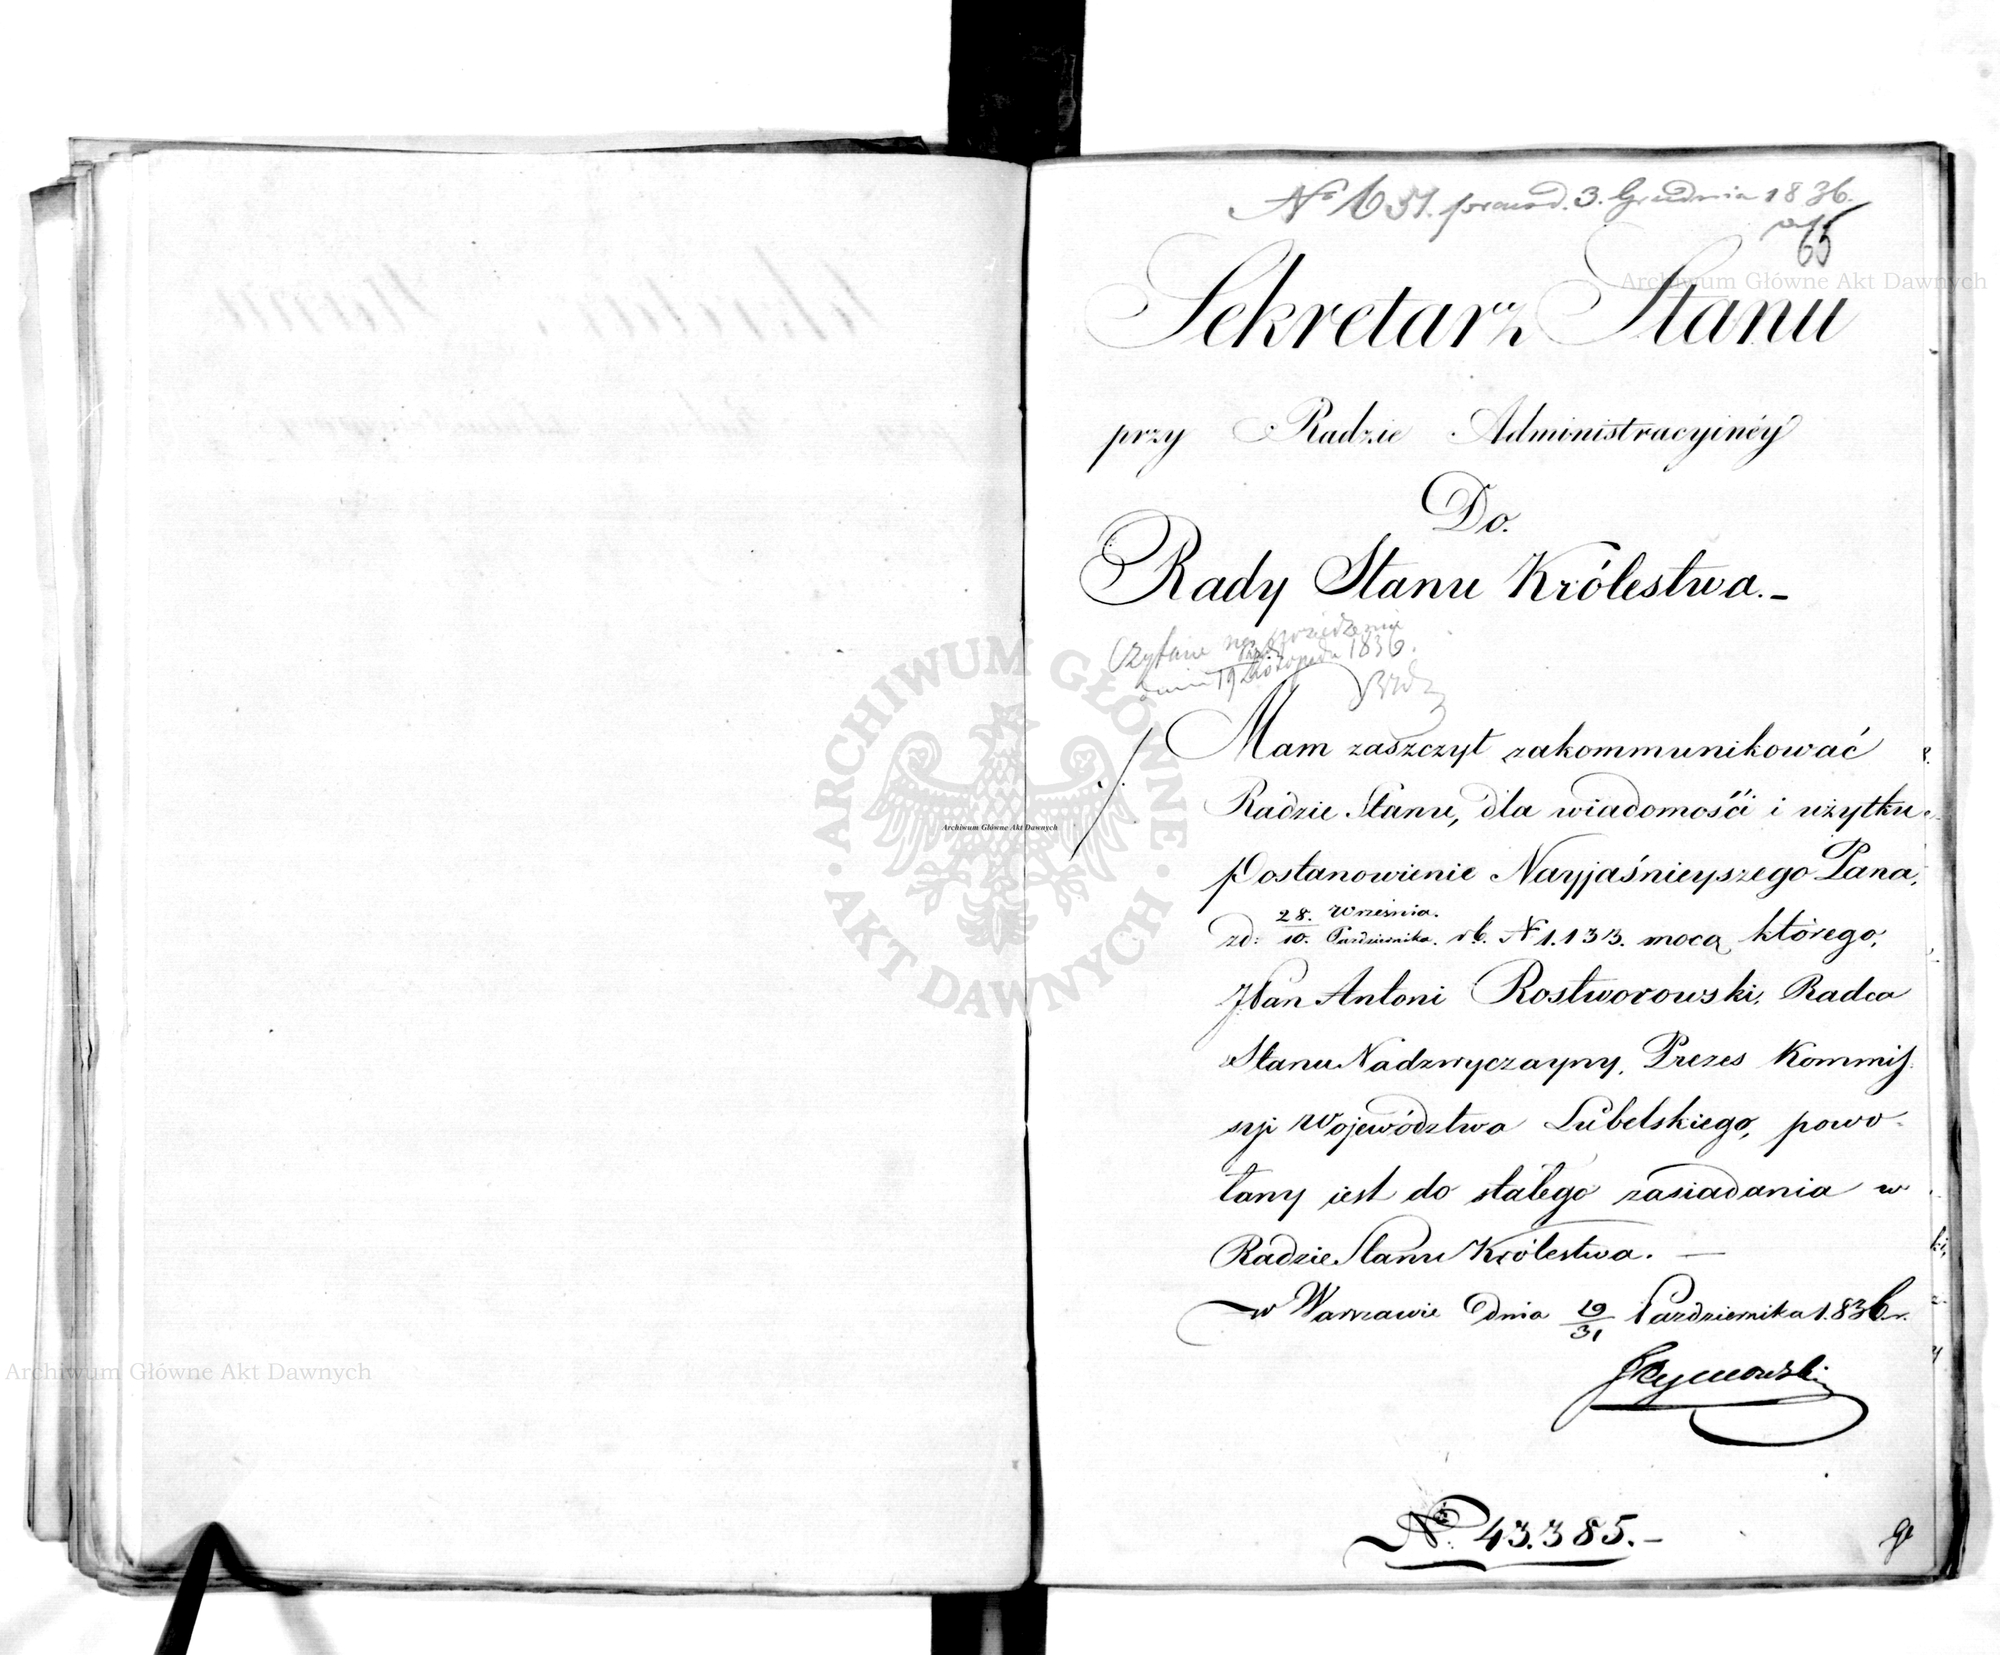 Nº 651. prezent. d. 3. Grudnia 1836.
65
Sekretarz Stanu
przy Radzie Administracyinéy
Do.
Rady Stanu Królestwa.-
Czytane na posiedzeniu
dnia 19 Listopada 1836.
Mam zaszczyt zakommunikować
Radzie Stanu, dla wiadomości i użytku
Postanowienie Nayjaśnieyszego Pana,
zd: 28. Września. / 10. Października. rb. N 1.133. mocą którego,
JPan Antoni Rostworowski, Radca
Stanu Nadzwyczayny, Prezes Kommis
syi Województwa Lubelskiego, powo-
łany iest do stałego zasiadania w
Radzie Stanu Królestwa. —
w Warszawie dnia 19/31 Października 1.836.r.
Nº 43.385.-
Archiwum Główne Akt Dawnych
ARCHIWUM GŁÓWNE · AKT DAWNYCH ·
Archiwum Główne Akt Dawnych
Archiwum Główne Akt Dawnych